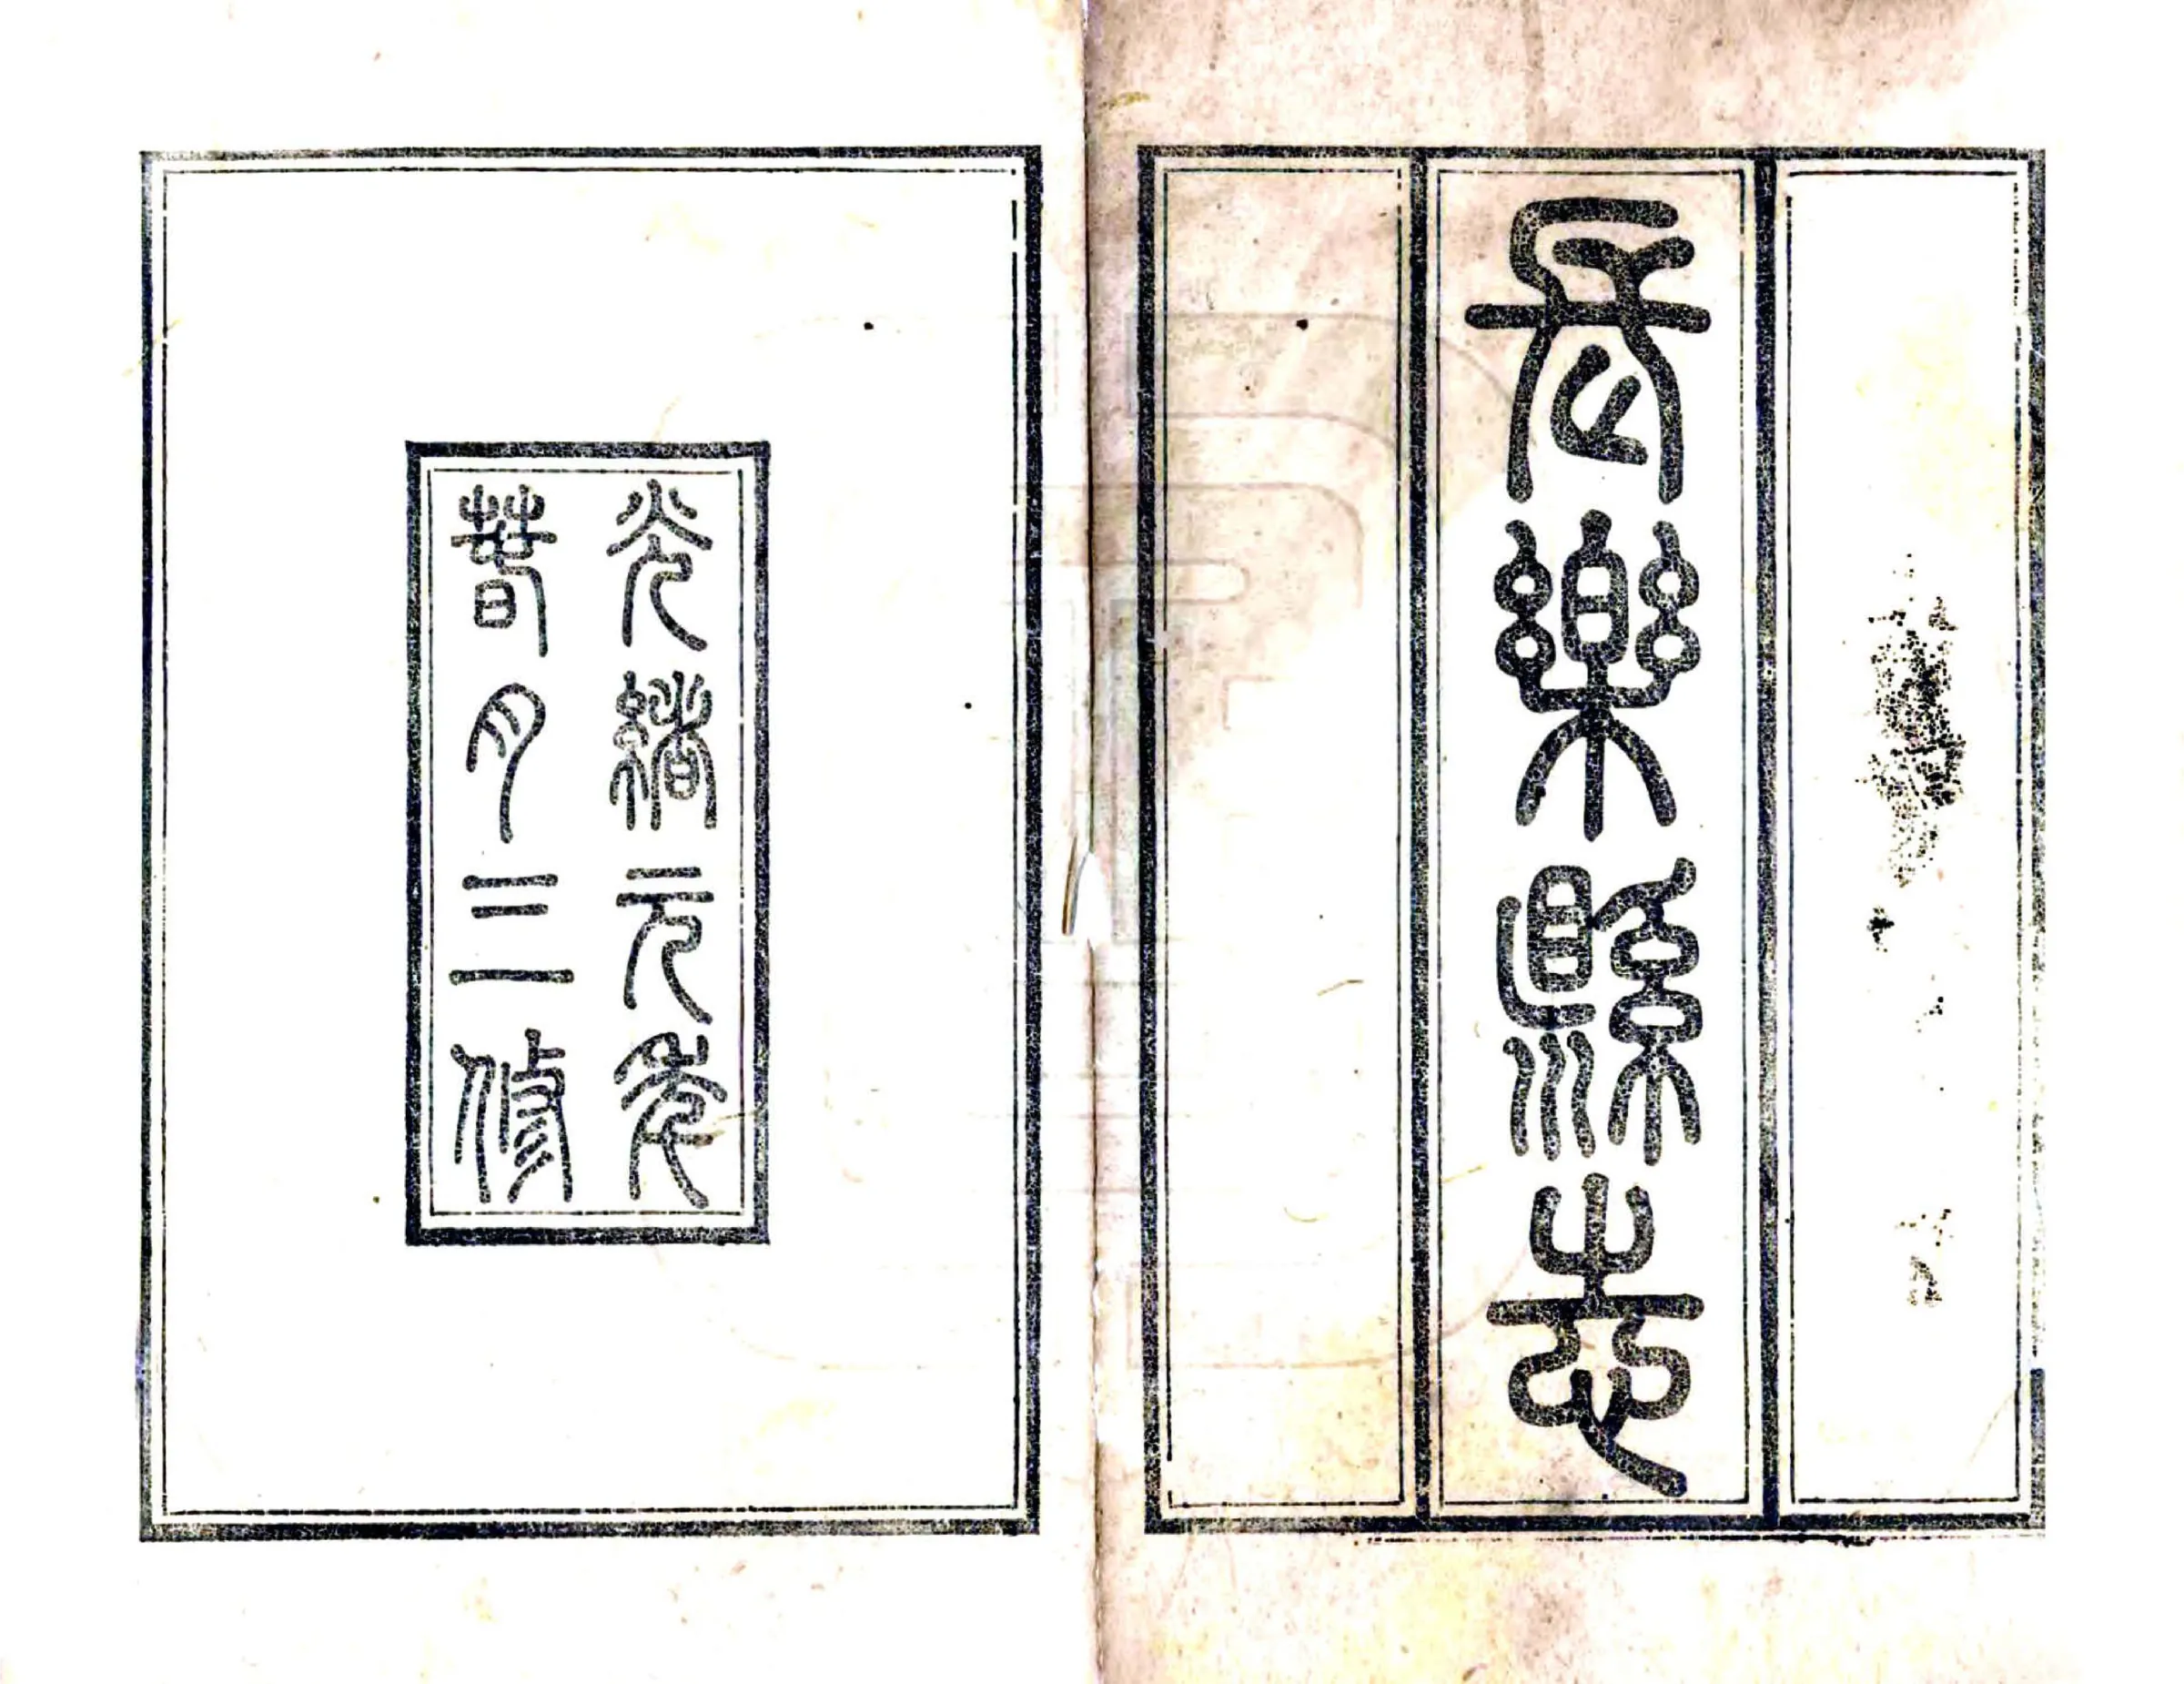 長樂縣志
光緒元年
春月三修